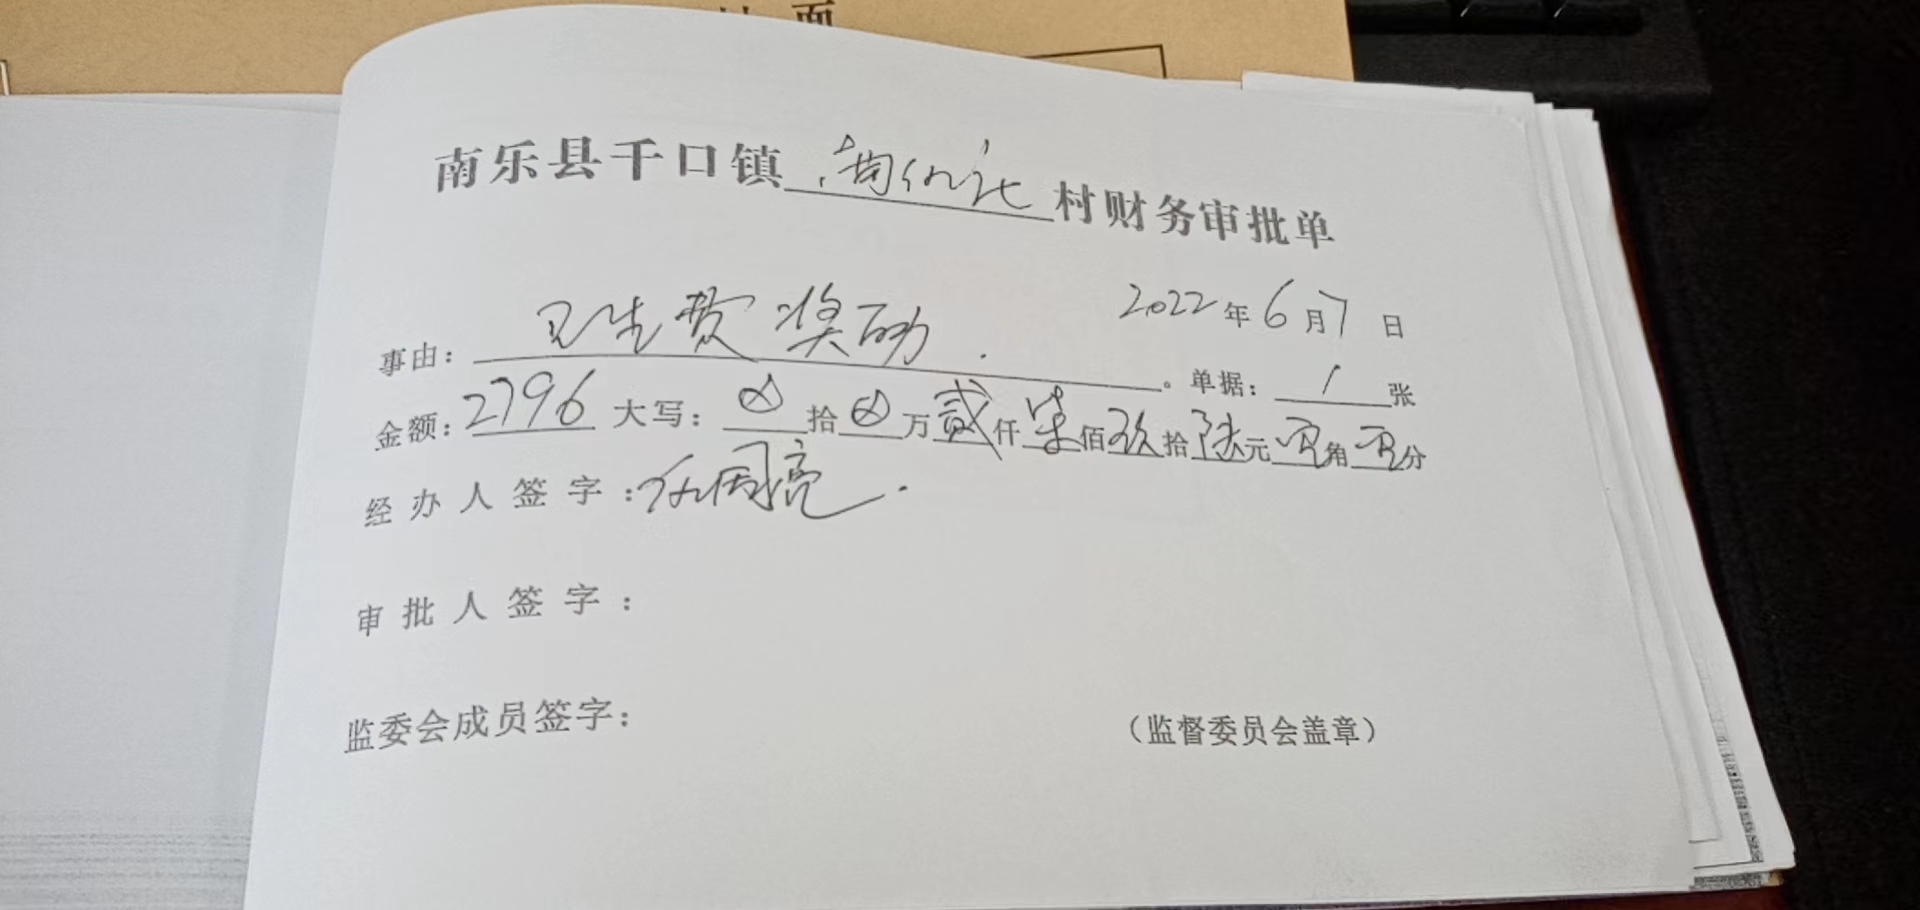 南乐县千口镇村财务审批单
2022年6月7日
事由：卫生费奖励.。单据：1张
金额：2796大写：⊗拾⊗万贰仟柒佰玖拾陆元零角零分
经办人签字：任周亮.
审批人签字：
监委会成员签字：
（监督委员会盖章）